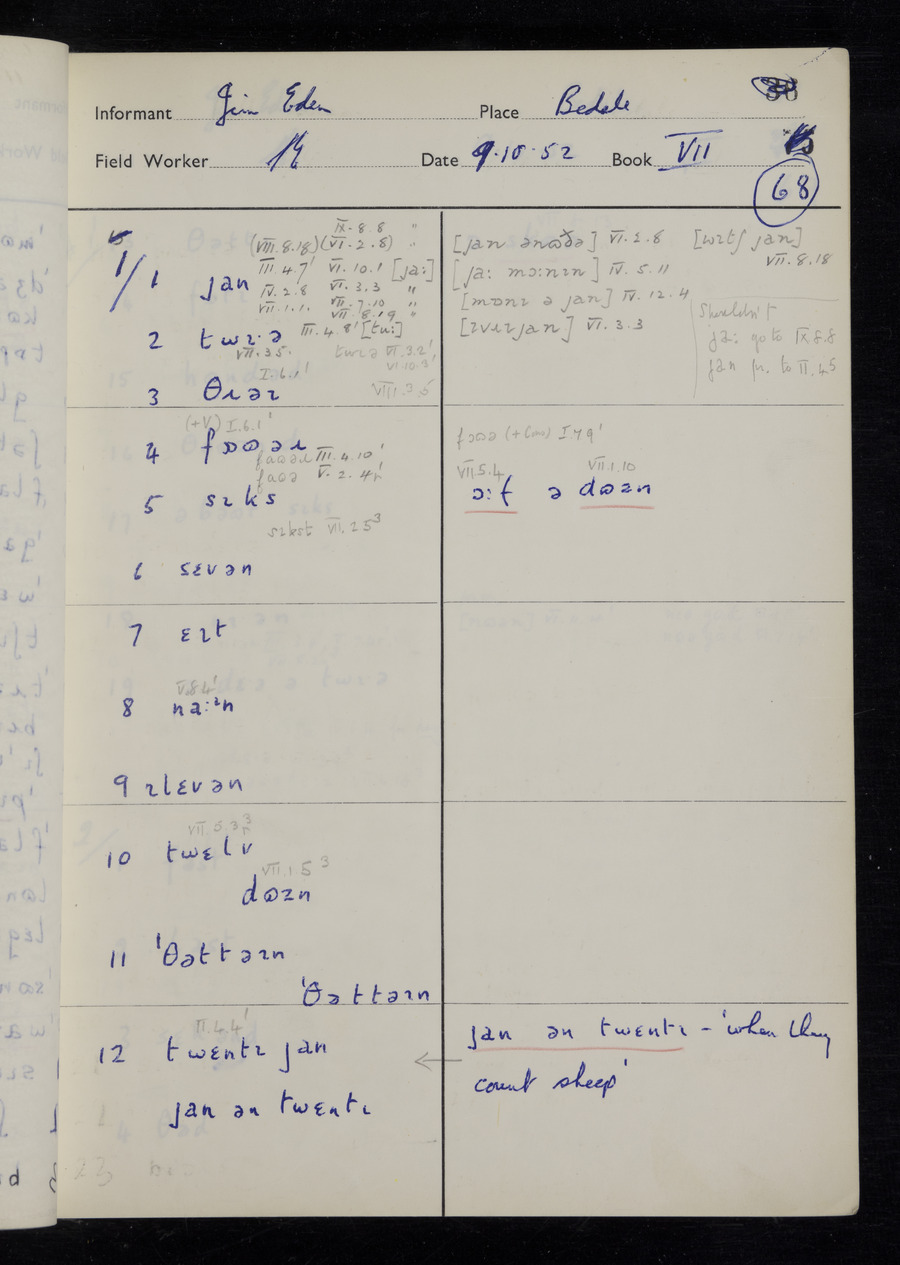 Informant Jim Eden Place Bedale
Field Worker Date 9.10.52 Book VII
68
IX.8.8 "
(VIII.8.18) (VI.2.8) "
1/1 jan III.4.7' VI.10.1 [ja:]
IV.2.8 VI.3.3 "
VII.1.1. VII.7.10 "
VII.8.19 "
2 twɪ.ə III.4.8' [tu:]
VII.3.5. twɪə VI.3.2'
VI.10.3'
I.6.1'
3 θɪəɪ VIII.3.5
(+V) I.6.1'
4 fɔʊəɹ
faʊəɹ III.4.10'
faʊə V.2.4'
5 sɪks
sɪkst VII.2 5³
6 sɛvən
7 ɛɪt
V.8.4'
8 na:ɪn
9 ɪlɛvən
VII.5.3³
10 twɛlv
VII.1.5³
dʊzn
11 'θəttəɪn
'θəttəɪn
II.4.4'
12 twɛntɪ jan
jan ən twɛntɪ
[jan ənʊðə] VI.2.8 [wɪtʃ jan]
VII.8.18
[ja: mɔ:nɪn] IV.5.11
[mʊnɪ ə jan] IV.12.4
[ɪvɪɪjan] VI.3.3
Shouldn't
ja: go to IX.8.8
jan to II.4.5
fɔʊə I.7.9'
VII.5.4 VII.1.10
ɔ:f ə dʊzn
jan ən twɛntɪ – 'when they
count sheep'